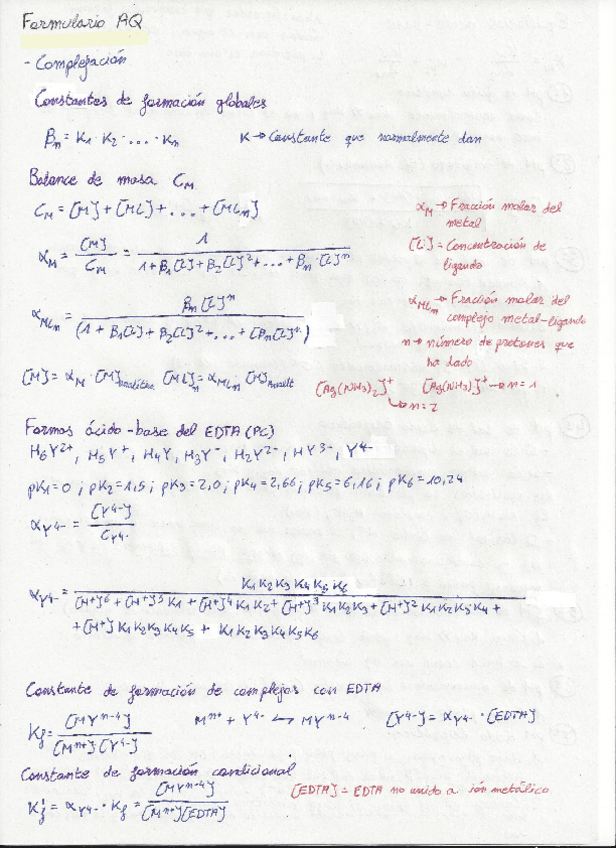 Formulario AQ
- Complejación
Constantes de formación globales
βn = K1 · K2 · ... · Kn   K → Constante que normalmente dan
Balance de masa CM
CM = [M] + [ML] + ... + [MLn]
αM → Fracción molar del metal
αM = [M] / CM = 1 / (1 + β1[L] + β2[L]² + ... + βn·[L]ⁿ)
[L] = Concentración de ligando
αMLn = βn[L]ⁿ / (1 + β1[L] + β2[L]² + ... + [βn[L]ⁿ·)
αMLn → Fracción molar del complejo metal-ligando
n → número de protones que ha dado
[M] = αM · [M]analítica   [ML]n = αMLn · [M]analít
[Ag(NH3)2]⁺ → n = 2   [Ag(NH3)]⁺ → n = 1
Formas ácido-base del EDTA (PC)
H6Y²⁺, H5Y⁺, H4Y, H3Y⁻, H2Y²⁻, HY³⁻, Y⁴⁻
pK1 = 0 ; pK2 = 1,5 ; pK3 = 2,0 ; pK4 = 2,66 ; pK5 = 6,16 ; pK6 = 10,24
αY⁴⁻ = [Y⁴⁻] / CY⁴⁻
αY⁴⁻ = K1K2K3K4K5K6 / [H⁺]⁶ + [H⁺]⁵K1 + [H⁺]⁴K1K2 + [H⁺]³K1K2K3 + [H⁺]²K1K2K3K4 +
+ [H⁺]K1K2K3K4K5 + K1K2K3K4K5K6
Constante de formación de complejos con EDTA
Kf = [MYⁿ⁻⁴] / [Mⁿ⁺]·[Y⁴⁻]   Mⁿ⁺ + Y⁴⁻ ↔ MYⁿ⁻⁴   [Y⁴⁻] = αY⁴⁻ · [EDTA]
Constante de formación condicional
K'f = αY⁴⁻ · Kf = [MYⁿ⁻⁴] / [Mⁿ⁺][EDTA]   [EDTA] = EDTA no unido a ión metálico